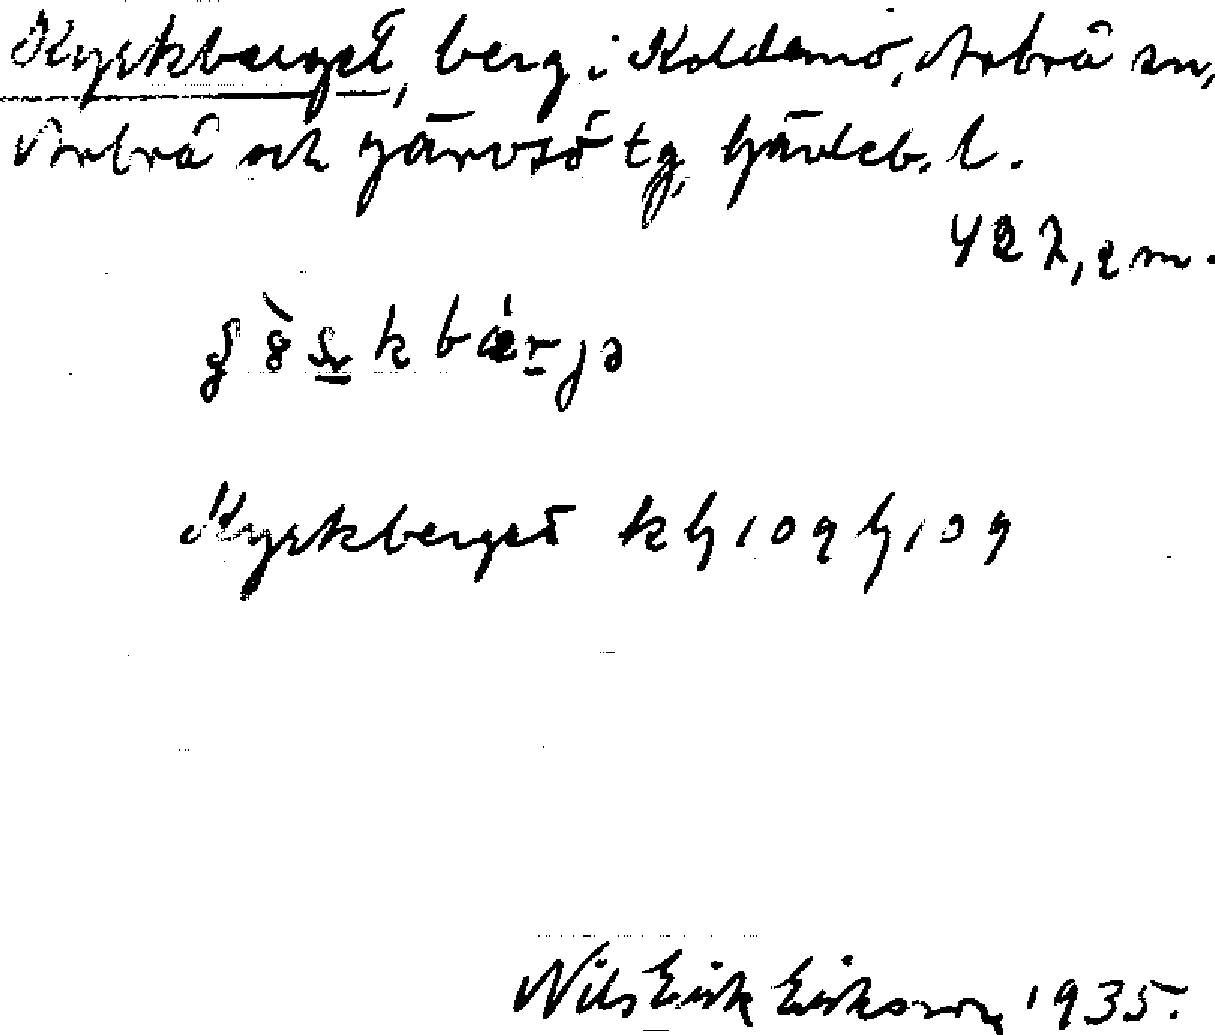 Kyrkberget, berg i Koldemo, Arbrå sn,
Arbrå och Järvsö tg, Gävleb. l.
427,2 m.
Kyrkberget k G 109 G 109
Nils Erik Eriksson 1935.